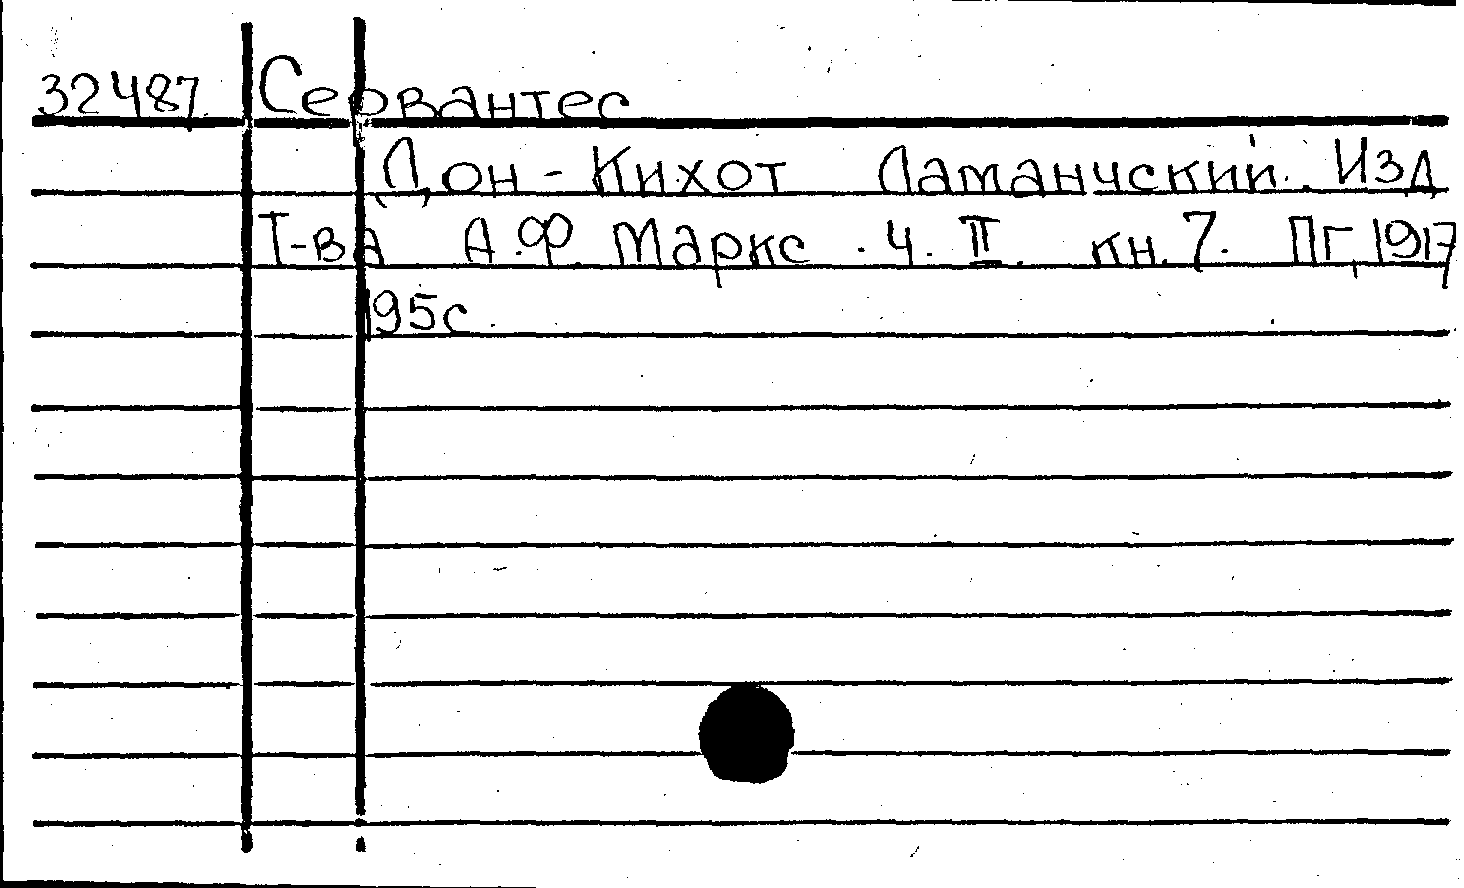 32487 Сервантес
Дон-Кихот Ламанчский. Изд
Т-ва А.Ф. Маркс. ч. II. кн. 7. Пг, 1917
195с.